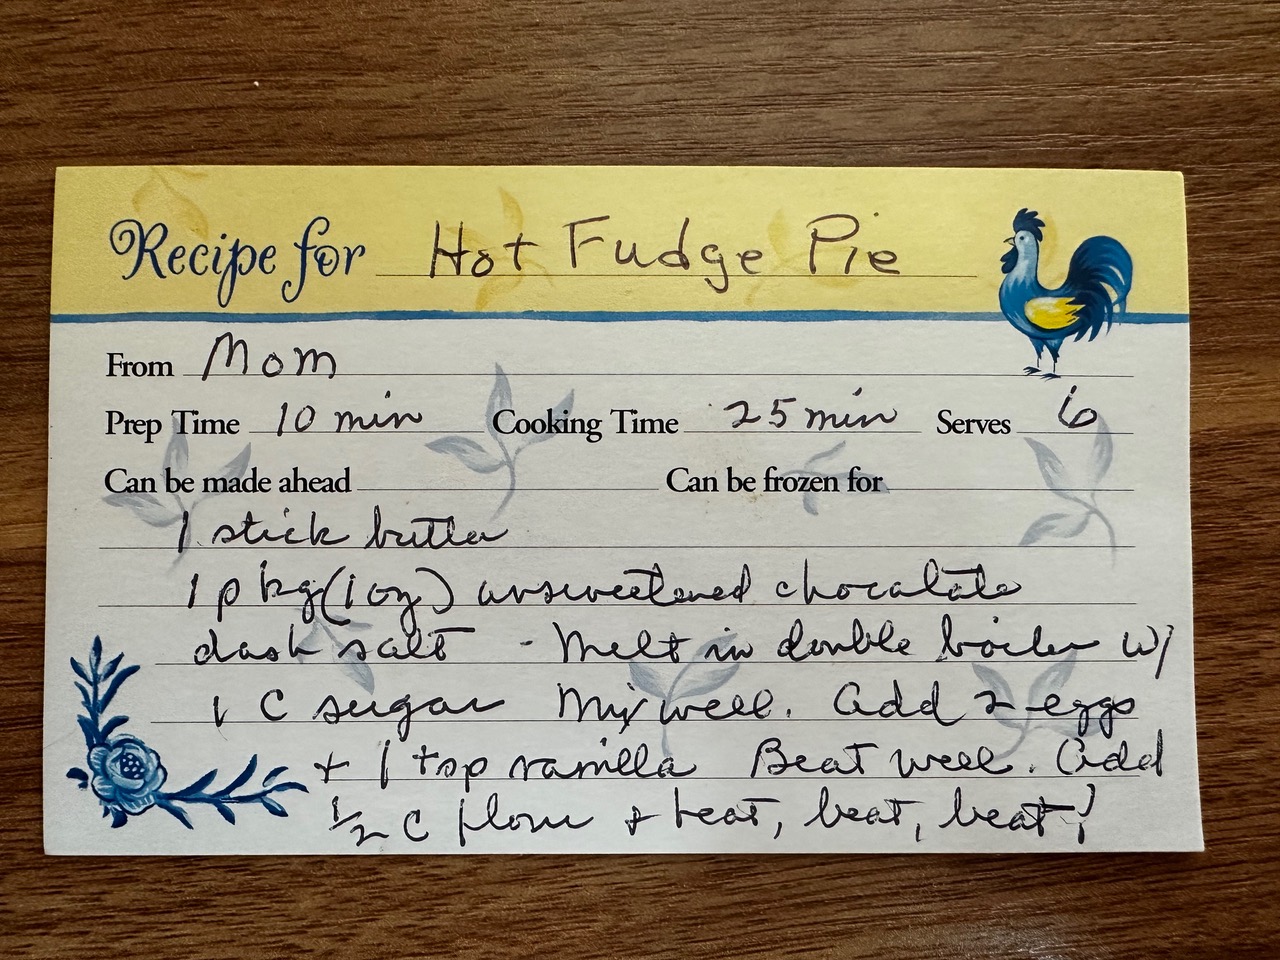 Recipe for Hot Fudge Pie
From Mom
Prep Time 10 min Cooking Time 25 min Serves 6
Can be made ahead Can be frozen for
1 stick butter
1 pkg (1 oz) unsweetened chocolate
dash salt - Melt in double boiler w/
1 C sugar Mix well. Add 2 eggs
+ 1 tsp vanilla Beat well. Add
1/2 C flour + beat, beat, beat!